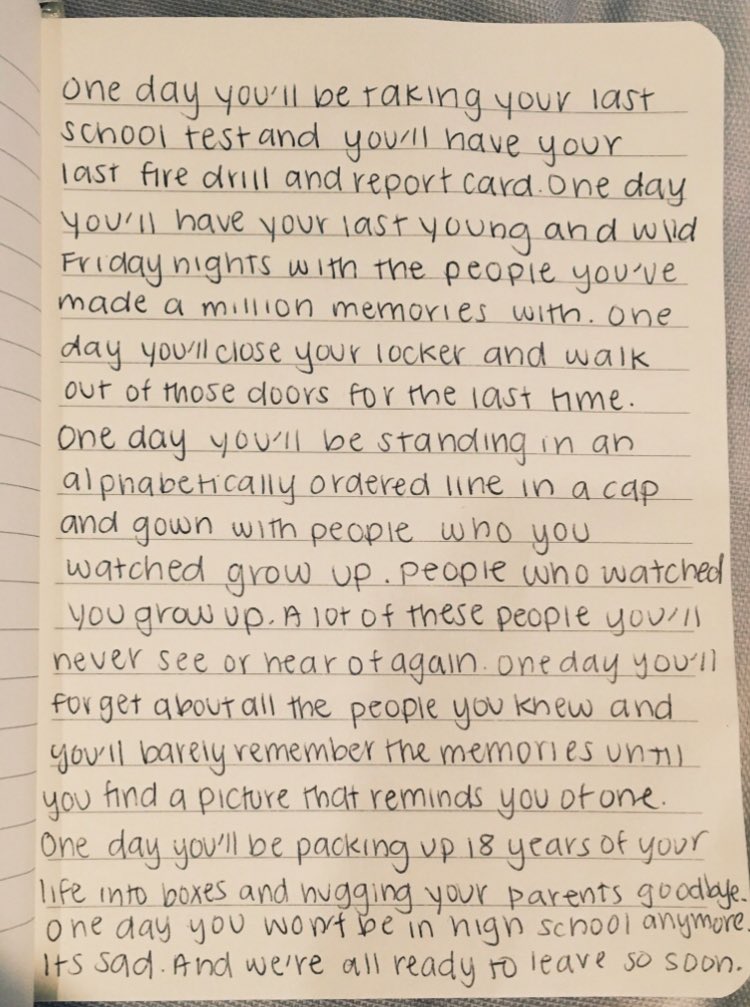 One day you'll be taking your last
school test and you'll have your
last fire drill and report card. One day
you'll have your last young and wild
Friday nights with the people you've
made a million memories with. One
day you'll close your locker and walk
out of those doors for the last time.
One day you'll be standing in an
alphabetically ordered line in a cap
and gown with people who you
watched grow up. People who watched
you grow up. A lot of these people you'll
never see or hear of again. One day you'll
forget about all the people you knew and
you'll barely remember the memories until
you find a picture that reminds you of one.
One day you'll be packing up 18 years of your
life into boxes and hugging your parents goodbye.
One day you won't be in high school anymore.
Its sad. And we're all ready to leave so soon.